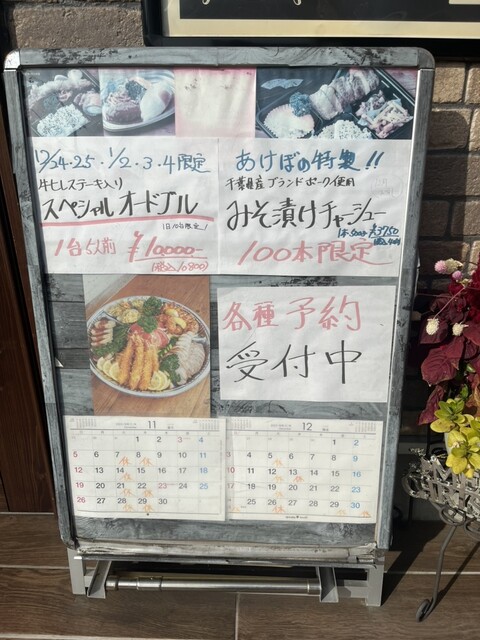 12/24・25・1/2・3・4限定
牛ヒレステーキ入り
スペシャルオードブル
1日10台限定!
1台5人前 ¥10000-
(税込10800)
あけぼの特製!!
千葉県産ブランドポーク使用
みそ漬けチャーシュー
1本500g ¥3750
100本限定
各種予約
受付中
11
3 4
5 6 7 8 9 10 11
12 13 14 15 16 17 18
19 20 21 22 23 24 25
26 27 28 29 30
休
12
1 2
3 4 5 6 7 8 9
10 11 12 13 14 15 16
17 18 19 20 21 22 23
25 26 27 28 29 30
休